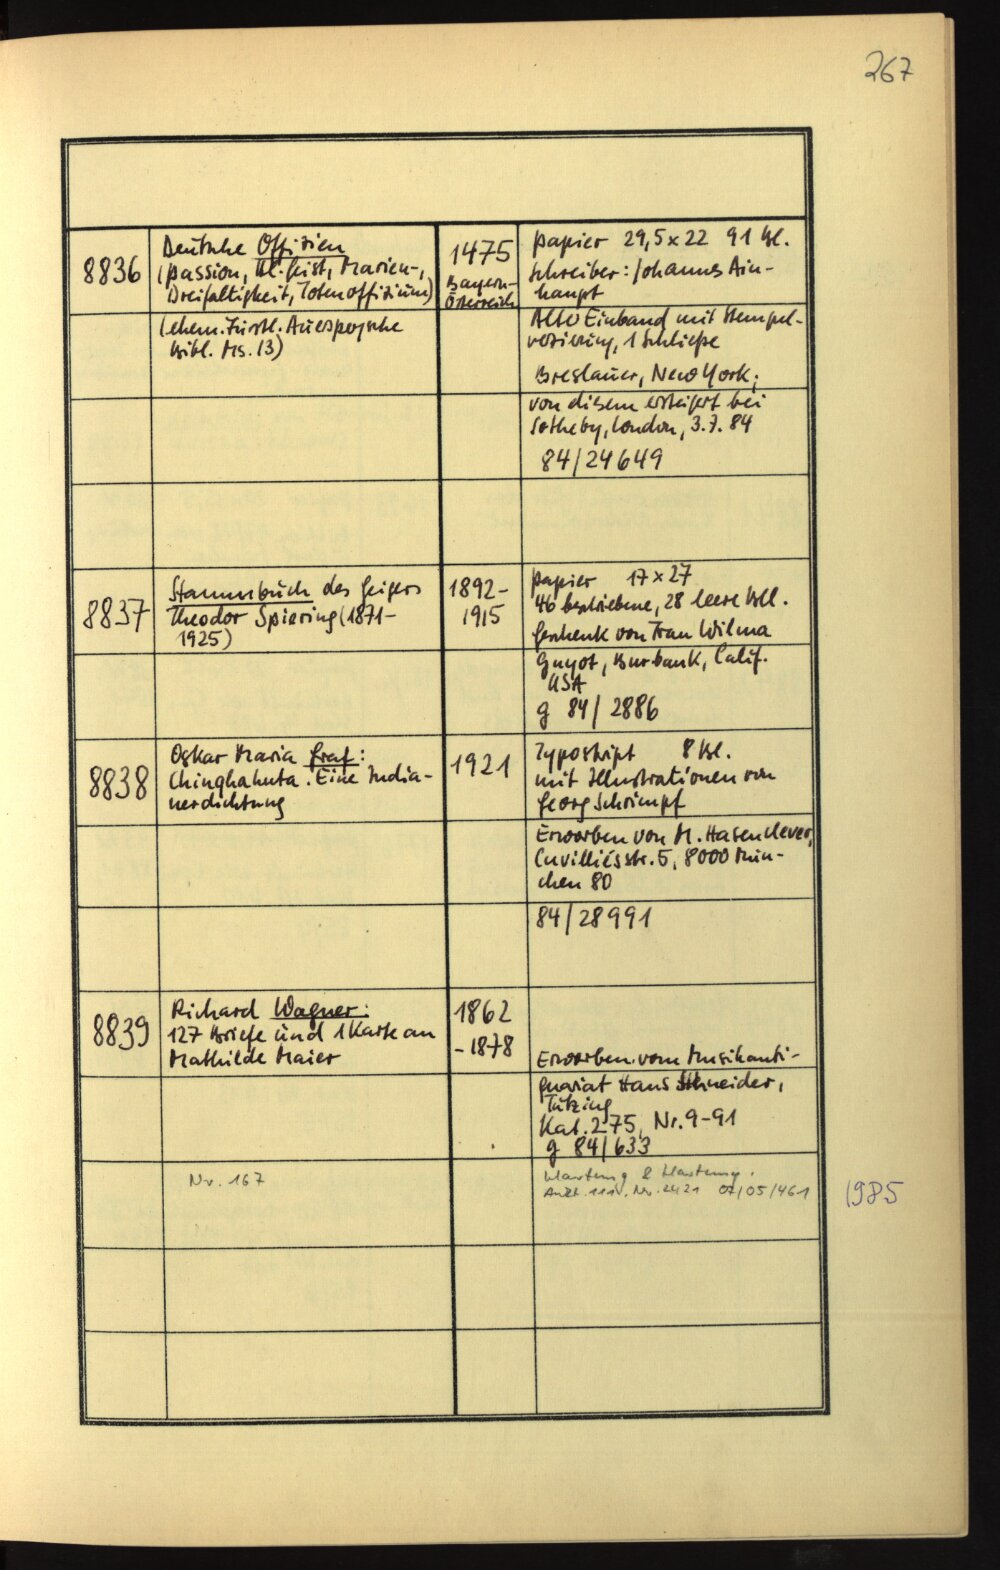 267
8836
Deutsche Offizien
(Passion, Hl. Geist, Marien-,
Dreifaltigkeit, Totenoffizium)
(ehem. Fürstl. Auerspergsche
Bibl. Ms. 13)
1475
Bayern-
Österreich
Papier 29,5 x 22 91 Bl.
Schreiber: Johannes Ain-
haupt
Alter Einband mit Stempel-
verzierung, 1 Schließe
Breslauer, New York;
von diesem ersteigert bei
Sotheby, London, 3.7.84
84/24649
8837
Stammbuch des Geigers
Theodor Spiering (1871-
1925)
1892-
1915
Papier 17 x 27
46 beschriebene, 28 leere Bll.
Geschenk von Frau Wilma
Guyot, Burbank, Calif.
USA
g 84/2886
8838
Oskar Maria Graf:
Chinghahuta. Eine India-
nerdichtung
1921
Typoskript 8 Bl.
mit Illustrationen von
Georg Schrimpf
Erworben von M. Hasenclever,
Cuvilliésstr. 5, 8000 Mün-
chen 80
84/28991
8839
Richard Wagner:
127 Briefe und 1 Karte an
Mathilde Maier
1862
-1878
Erworben vom Musikanti-
quariat Hans Schneider,
Tutzing
Kat. 275, Nr. 9-91
g 84/633
Nr. 167
Hartung & Hartung.
Aukt. 111, Nr. 2421 07/05/461
1985